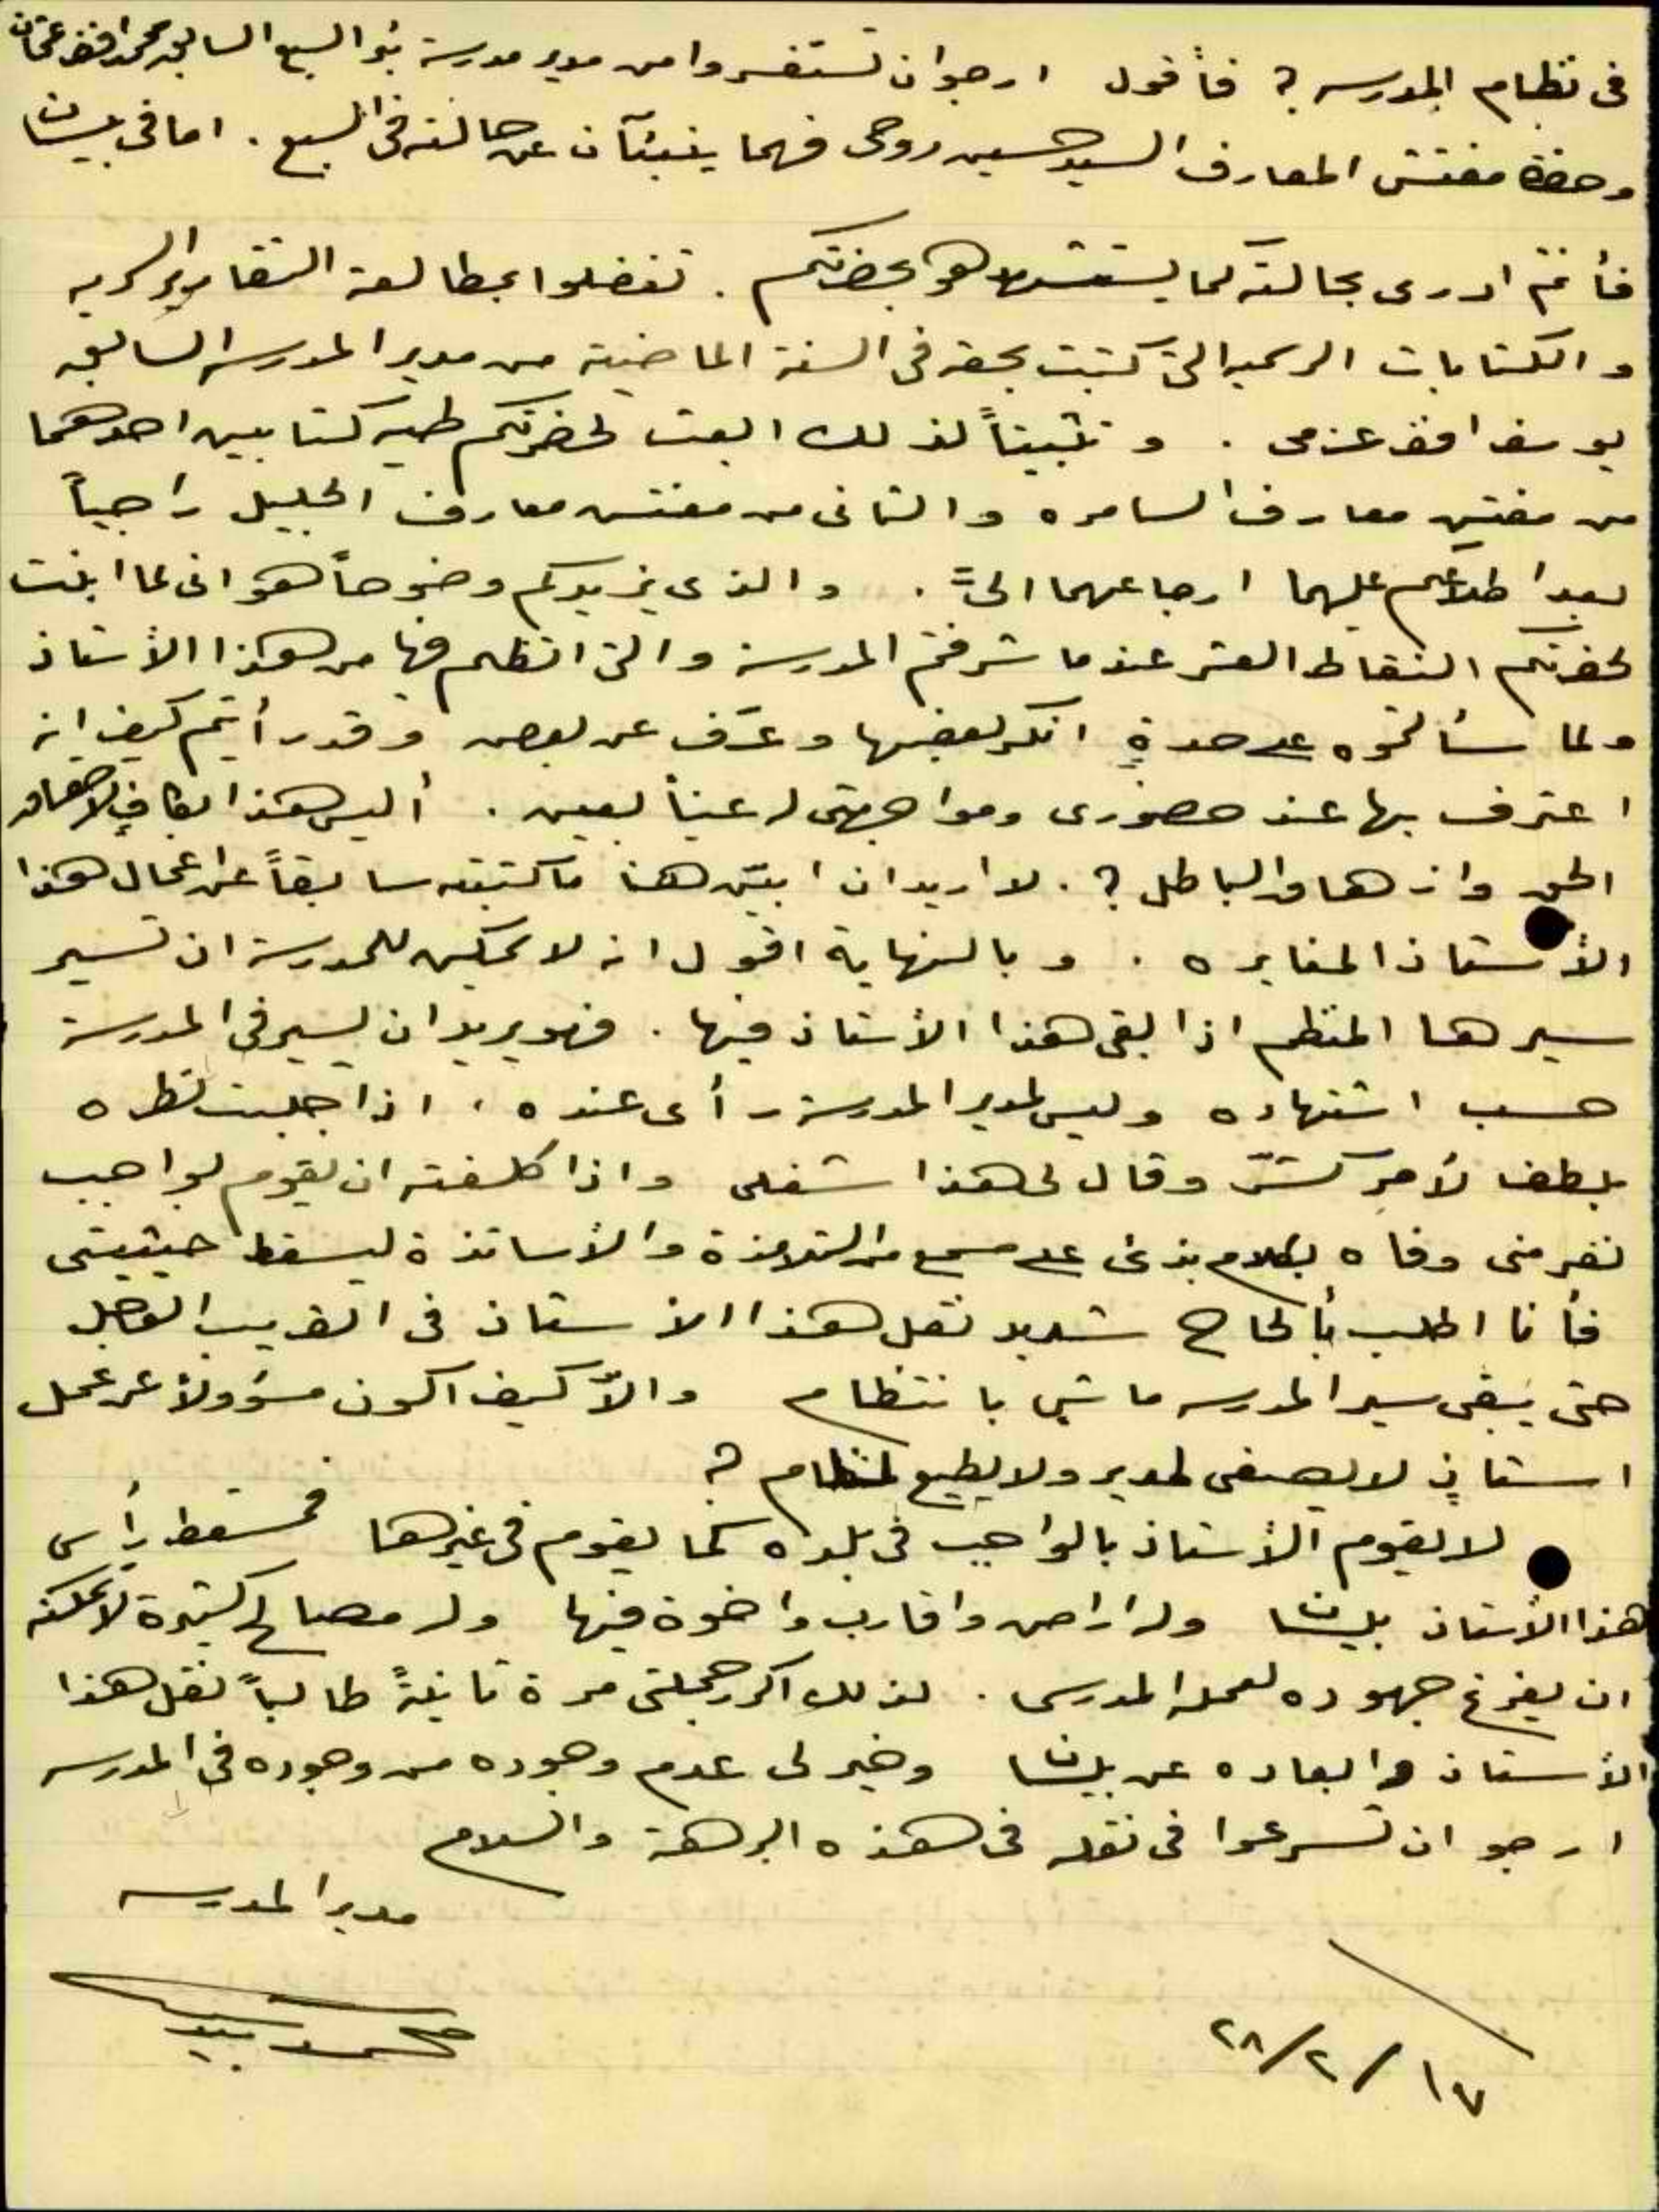 فى نظام المدرسه ؟ فأقول ارجو ان تستفسروا من مدير مدرسة بئر السبع السابق محمد افندى عثمان
وحضرة مفتش المعارف السيد حسين روحى فهما ينبئآن عن حالته فى السبع . اما فى بيسان
فأنتم ادرى بحالته كما يستشهد هو بحضرتكم . تفضلوا بمطالعة التقارير السريه
والكتابات الرسميه التى كتبت بحقه فى السنة الماضية من مدير المدرسه السابق
يوسف افندى عزمى . وتثبيتاً لذلك ابعث لحضرتكم طيه كتابين احدهما
من مفتش معارف السامره والثانى من مفتش معارف الجليل راجياً
بعد اطلاعكم عليهما ارجاعهما الىّ . والذى يزيدكم وضوحاً هو انى لما ابنت
لحضرتكم النقاط العشر عندما شرفتم المدرسة والتى اتظلم فيها من هذا الأستاذ
ولما سألتموه على حدةٍ انكر بعضها وعرّف عن بعض وقد رأيتم كيف انه
اعترف بها عند حضورى ومواجهتى له عيناً بعين . أليس هذا بكافٍ لإحقاق
الحق وازهاق الباطل ؟ . لا اريد ان ابيّن هنا ما كتبته سابقاً عن اعمال هذا
الأستاذ المغايره . وبالنهاية اقول انه لا يمكن للمدرسة ان تسير
سيرها المنظم اذا بقى هذا الأستاذ فيها . فهو يريد ان يسير فى المدرسة
حسب اشتهاده وليس لمدير المدرسة رأى عنده ، اذا جلبت نظره
بلطف لأمرٍ كشّر وقال لى هذا شغلى واذا كلفته ان يقوم بواجب
نفر منى وفاه بكلام بذئ على مسمع من التلامذة والأساتذة ليسقط حيثيتى
فأنا اطلب بألحاح شديد نقل هذا الأستاذ فى القريب العاجل
حتى يبقى سير المدرسه ماشى بانتظام والاّ كيف اكون مسؤولاً عن عمل
استاذٍ لا يصغى لمدير ولا يطيع لنظام ؟
لا يقوم الأستاذ بالواجب فى بلده كما يقوم فى غيرها فمسقط رأس
هذا الأستاذ بيسان وله اراضى واقارب واخوة فيها وله مصالح كثيرة لا يمكنه
ان يفرغ جهوده لعمله المدرسى . لذلك اكرر جملتى مرة ثانيةً طالباً نقل هذا
الأستاذ وابعاده عن بيسان وخير لى عدم وجوده من وجوده فى المدرسه
ارجو ان تسرعوا فى نقله فى هذه البرهة والسلام
مدير المدرسه
١٧/٢/٢٨